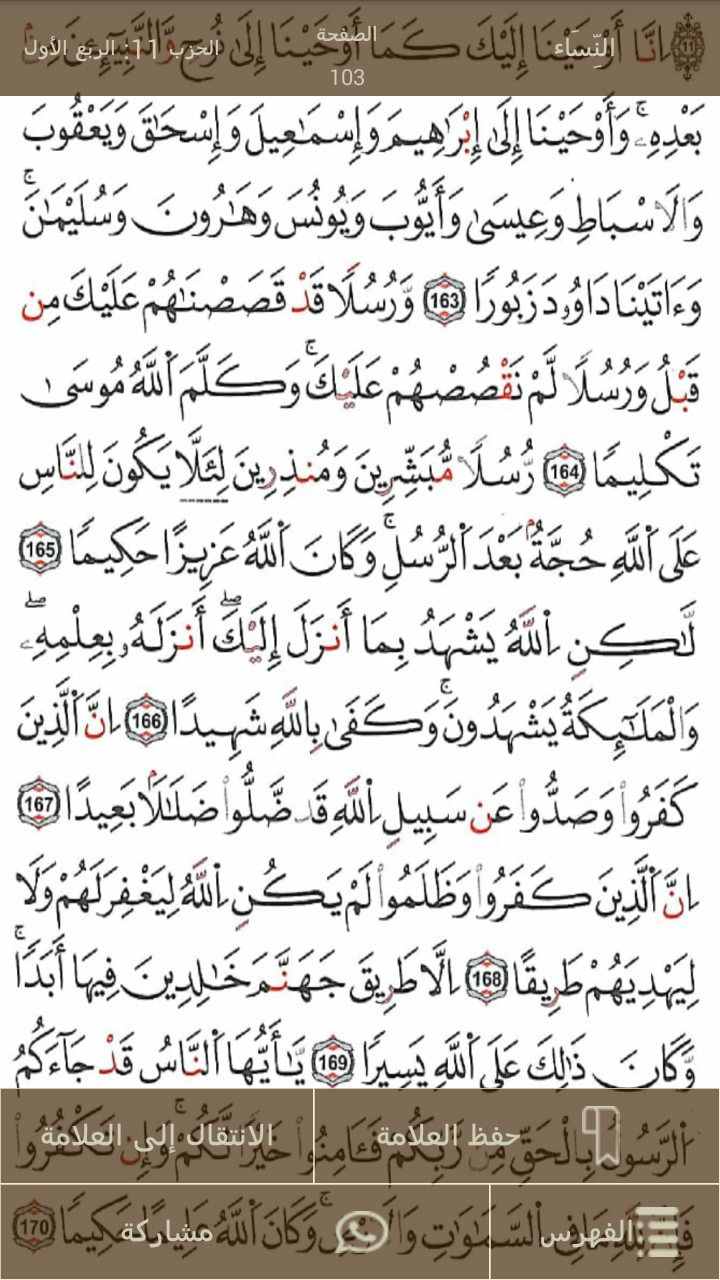 النِّسَاء
الصفحة
103
الحزب 11: الربع الأول
11 اِنَّا أَوْحَيْنَا إِلَيْكَ كَمَا أَوْحَيْنَا إِلَىٰ نُوحٍ وَّالنَّبِيِّينَ مِنۢ
بَعْدِهِۦ ۚ وَأَوْحَيْنَا إِلَىٰ إِبْرَاهِيمَ وَإِسْمَاعِيلَ وَإِسْحَاقَ وَيَعْقُوبَ
وَالَاسْبَاطِ وَعِيسَىٰ وَأَيُّوبَ وَيُونُسَ وَهَارُونَ وَسُلَيْمَانَ ۚ
وَءَاتَيْنَا دَاوُۥدَ زَبُورًا 163 وَّرُسُلًا قَدْ قَصَصْنَاهُمْ عَلَيْكَ مِن
قَبْلُ وَرُسُلًا لَّمْ نَقْصُصْهُمْ عَلَيْكَ ۚ وَكَلَّمَ اَ۬للَّهُ مُوسَىٰ
تَكْلِيمًا 164 رُّسُلًا مُّبَشِّرِينَ وَمُنذِرِينَ لِئَلَّا يَكُونَ لِلنَّاسِ
عَلَى اَ۬للَّهِ حُجَّةُۢ بَعْدَ اَ۬لرُّسُلِ ۚ وَكَانَ اَ۬للَّهُ عَزِيزًا حَكِيمًا 165
لَّاكِنِ اِ۬للَّهُ يَشْهَدُ بِمَا أَنزَلَ إِلَيْكَ ۖ أَنزَلَهُۥ بِعِلْمِهِۦ ۖ
وَالْمَلَٰٓئِكَةُ يَشْهَدُونَ ۚ وَكَفَىٰ بِاللَّهِ شَهِيدًا 166 اِنَّ اَ۬لَّذِينَ
كَفَرُواْ وَصَدُّواْ عَن سَبِيلِ اِ۬للَّهِ قَد ضَّلُّواْ ضَلَالَۢا بَعِيدًا 167
اِنَّ اَ۬لَّذِينَ كَفَرُواْ وَظَلَمُواْ لَمْ يَكُنِ اِ۬للَّهُ لِيَغْفِرَ لَهُمْ وَلَا
لِيَهْدِيَهُمْ طَرِيقًا 168 اِلَّا طَرِيقَ جَهَنَّمَ خَالِدِينَ فِيهَا أَبَدًا ۚ
وَّكَانَ ذَٰلِكَ عَلَى اَ۬للَّهِ يَسِيرًا 169 يَٰأَيُّهَا اَ۬لنَّاسُ قَدْ جَآءَكُمُ
اُ۬لرَّسُولُ بِالْحَقِّ مِن رَّبِّكُمْ فَـَٔامِنُواْ خَيْرًا لَّكُمْ ۚ وَإِن تَكْفُرُواْ
حفظ العلامة
الانتقال إلى العلامة
فَإِنَّ لِلَّهِ مَا فِي اِ۬لسَّمَٰوَٰتِ وَالَارْضِ ۚ وَكَانَ اَ۬للَّهُ عَلِيمًا حَكِيمًا 170
الفهرس
مشاركة